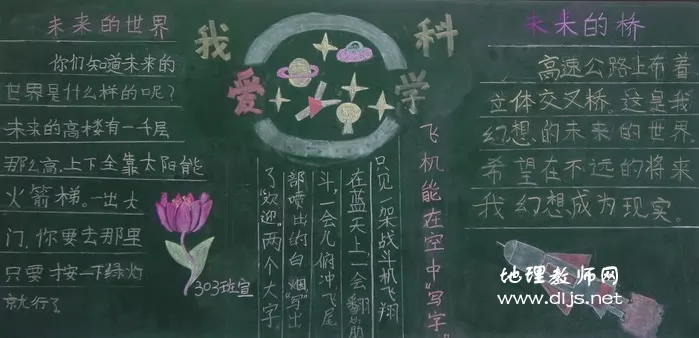 未来的世界
你们知道未来的
世界是什么样的呢？
未来的高楼有一千层
那么高，上下全靠太阳能
火箭梯。一出大
门，你要去那里
只要按一下绿灯
就行了。
303班宣
我爱科学
飞机能在空中“写字”
只见一架战斗机飞翔
在蓝天上，一会翻筋
斗，一会儿俯冲，飞尾
部喷出的白烟“写”出
了“欢迎”两个大字。
未来的桥
高速公路上布着
立体交叉桥。这是我
幻想的未来的世界。
希望在不远的将来
我幻想成为现实。
地理教师网
www.dljs.net